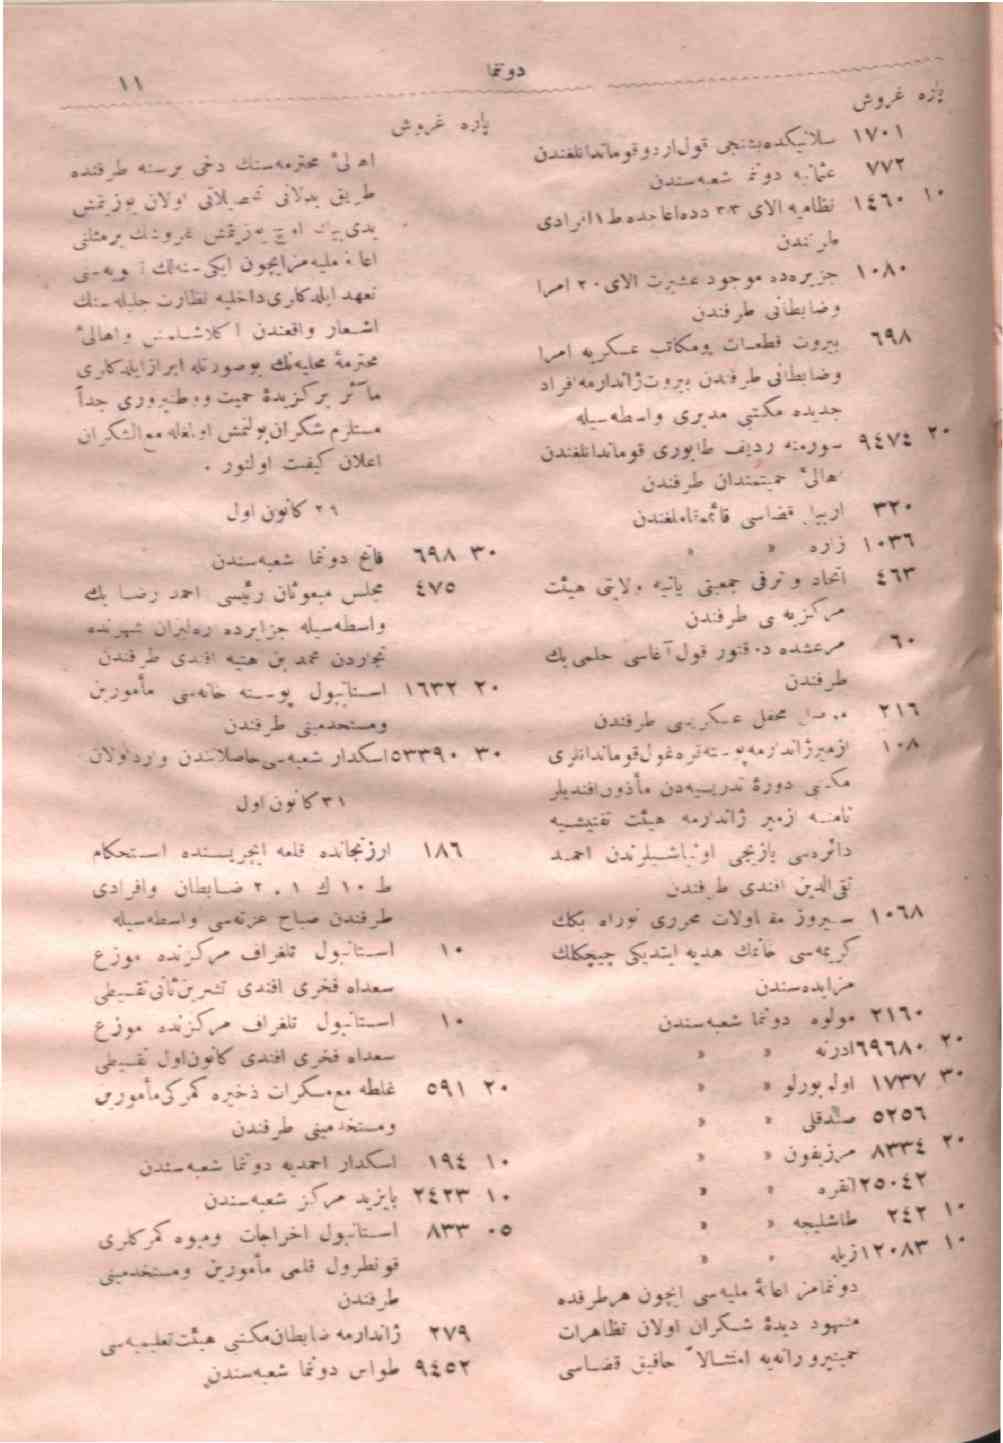 دوتنما
١١
پاره غروش
١٧٠١ سلانیکده بشنجی قول اردو قوماندانلغندن
٧٧٢ عثمانیه دوتنما شعبه‌سندن
١٠ ١٤٦٠ نظامیه الای ٣٣ دده‌اغاجده ط ١ افرادی
طرفندن
١٠٨٠ جزیره‌ده موجود عشیرت الای ٢٠ امرا
وضابطانی طرفندن
٦٩٨ بیروت قطعات ومکاتب عسکریه امرا
وضابطانی طرفندن بیروت ژاندارمه افراد
جدیده مکتبی مدیری واسطه‌سیله
٢٠ ٩٤٧٤ سورمنه ردیف طابوری قوماندانلغندن
اهالئ حمیتمندان طرفندن
٣٢٠ قضاسی قائممقاملغندن
١٠٣٦ زاره » »
٤٦٣ اتحاد و ترقی جمعیتی یانیه ولایتی هیئت
مرکزیه‌سی طرفندن
٦٠ مرعشده دوقتور قول آغاسی حلمی بك
طرفندن
٢١٦ موصل محفل عسکریسی طرفندن
١٠٨ ازمیر ژاندارمه پوسته قره‌غول قوماندانلری
مکتبی دورهٔ تدریسیه‌دن مأذون افندیلر
نامنه ازمیر ژاندارمه هیئت تفتیشیه
دائره‌سی یازیجی اونباشیلرندن احمد
تقی‌الدین افندی طرفندن
١٠٦٨ سیروز مقاولات محرری نوراه بکك
کریمه‌سی خانمك هدیه ایتدیکی چیچکلك
مزایده‌سندن
٢١٦٠ مولوه دوتنما شعبه‌سندن
٢٠ ٦٩٦٨٠ ادرنه » »
٣٠ ١٧٣٧ اولوبورلو » »
٥٢٥٦ صندقلی » »
٢٠ ٨٣٣٤ مرزیفون » »
٢٥٠٤٢ انقره » »
١٠ ٢٤٢ طاشلیجه » »
١٠ ١٢٠٨٣ زیله » »
دونمامز اعانهٔ ملیه‌سی ایچون هر طرفده
مشهود دیدهٔ شکران اولان تظاهرات
حمیتپرورانه‌یه امتثالاً حافیق قضاسی
پاره غروش
اهالئ محترمه‌سنك دخی برسنه ظرفنده
طریق بدلاتی تحصیلاتی اولان یوزیتمش
یدی بیك اوچ یوزیتمش غروشك برمثلنی
اعانهٔ ملیه‌مز ایچون ایکی سنه‌لك تسویه‌سنی
تعهد ایلدکلری داخلیه نظارت جلیله‌سنك
اشعار واقعندن اکلاشلمش واهالئ
محترمهٔ محلیه‌نك بوصورتله ابراز ایلدکلری
مآثر برکزیدهٔ حمیت ووطنپروری جداً
مستلزم شکران بولنمش اولغله مع‌التشکران
اعلان کیفیت اولنور .
٢٩ کانون اول
٣٠ ٦٩٨ فاتح دوتنما شعبه‌سندن
٤٧٥ مجلس مبعوثان رئیسی احمد رضا بك
واسطه‌سیله جزایرده شهرنده
تجاردن محمد بن هنیه افندی طرفندن
٢٠ ١٦٣٢ استانبول پوسته خانه‌سی مأمورین
ومستخدمینی طرفندن
٣٠ ٥٣٣٩٠ اسکدار شعبه‌سی حاصلاتندن وارد اولان
٣١ کانون اول
١٨٦ ارزنجانده قلعه ایچریسنده استحکام
ط ١٠ ك ١ ، ٢ ضابطان وافرادی
طرفندن صباح غزته‌سی واسطه‌سیله
١٠ استانبول تلغراف مرکزنده موزع
سعداه فخری افندی تشرین‌ثانی تقسیطی
١٠ استانبول تلغراف مرکزنده موزع
سعداه فخری افندی کانون اول تقسیطی
٢٠ ٥٩١ غلطه مع مسکرات ذخیره کمرکی مأمورین
ومستخدمینی طرفندن
١٠ ١٩٤ اسکدار احمدیه دوتنما شعبه‌سندن
١٠ ٢٤٢٣ بایزید مرکز شعبه‌سندن
٠٥ ٨٣٣ استانبول اخراجات ومیوه کمرکلری
قونطرول قلمی مأمورین ومستخدمینی
طرفندن
٢٧٩ ژاندارمه ضابطان مکتبی هیئت تعلیمیه‌سی
٩٤٥٢ طواس دوتنما شعبه‌سندن